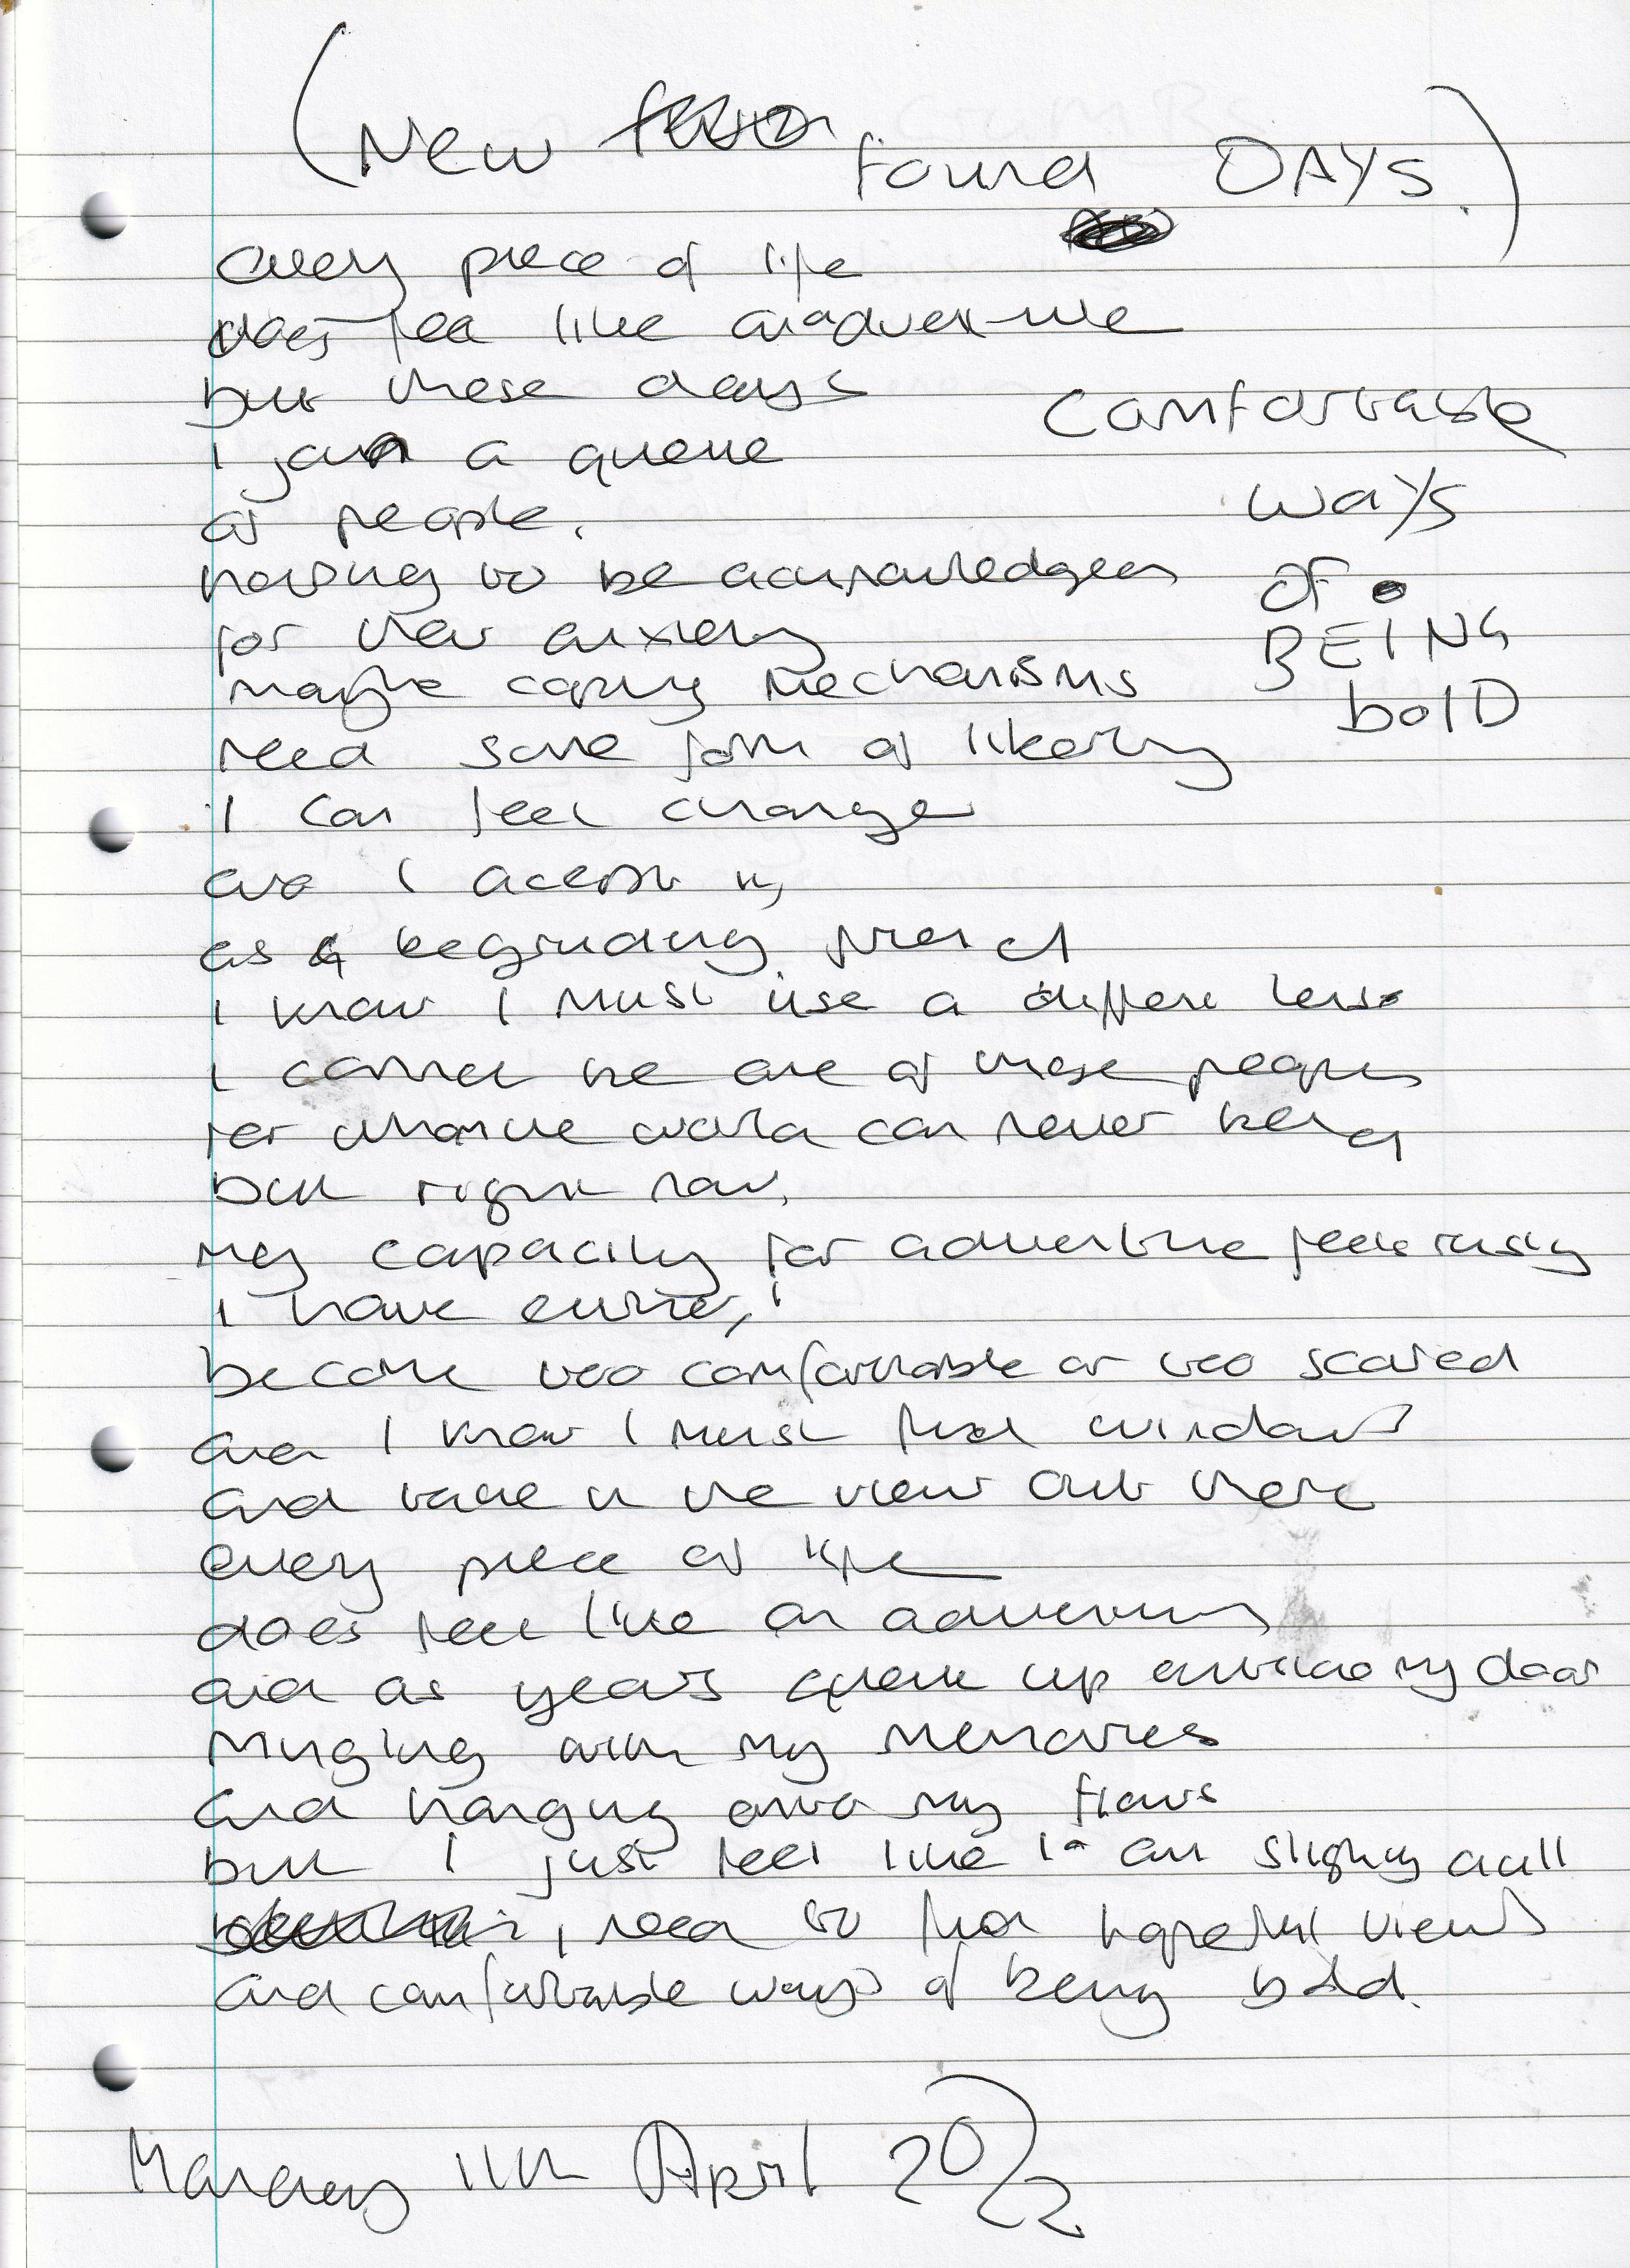 (New Found DAYS.)
every piece of life
does feel like an adventure
but these days
I join a queue
of people.
having to be acknowledged
for their anxiety
maybe coping mechanisms
need some form of
I can feel change
and I accept it,
as a beginning point of
I know I must use a different lens
I cannot be one of those people
for whom the world can never be
but right now,
my capacity for adventure feels rusty
I have either,
become too comfortable or too scared
and I know I must find windows
and take in the view out there
every piece of life
does feel like an adventure
and as years queue up outside my door
Mingling with my memories
and hanging onto my flaws
but I just feel like I am slightly dull
I need to find hopeful views
and comfortable ways of being bold.
Comfortable
ways
OF
BEING
bolD
Monday 11th April 2022